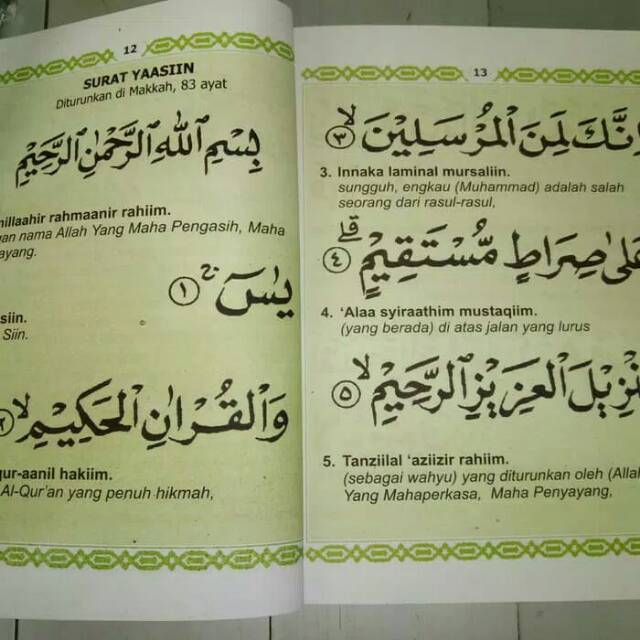 12
SURAT YAASIIN
Diturunkan di Makkah, 83 ayat
بِسْمِ اللهِ الرَّحْمٰنِ الرَّحِيْمِ
rahmaanir rahiim.
nama Allah Yang Maha Pengasih, Maha
يٰسۤ ۚ ١
Siin.
وَالْقُرْاٰنِ الْحَكِيْمِ ۙ
hakiim.
Al-Qur'an yang penuh hikmah,
13
اِنَّكَ لَمِنَ الْمُرْسَلِيْنَ ۙ ٣
3. Innaka laminal mursaliin.
sungguh, engkau (Muhammad) adalah salah
seorang dari rasul-rasul,
عَلٰى صِرَاطٍ مُّسْتَقِيْمٍ ۗ ٤
4. ‘Alaa syiraathim mustaqiim.
(yang berada) di atas jalan yang lurus
الْعَزِيْزِ الرَّحِيْمِ ۙ ٥
5. Tanziilal ‘aziizir rahiim.
(sebagai wahyu) yang diturunkan oleh (Allah
Yang Mahaperkasa, Maha Penyayang,